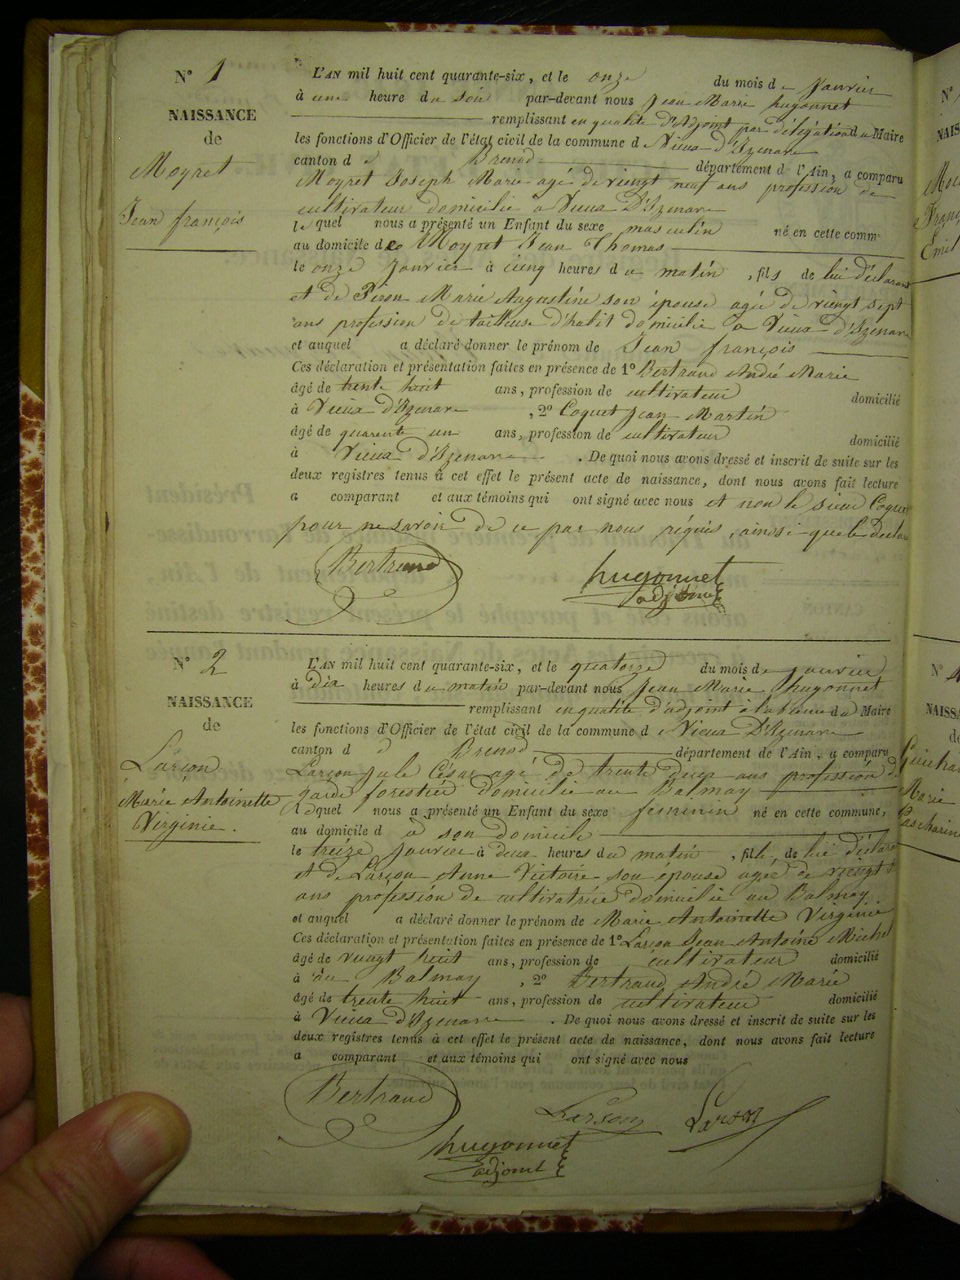 N° 1
NAISSANCE
de
Moyret
Jean françois
L'AN mil huit cent quarante-six, et le onze du mois de Janvier
à une heure du soir par-devant nous Jean Marie hugonnet
remplissant en qualité d'Adjoint par délégation du Maire
les fonctions d'Officier de l'état civil de la commune d Vieux d'Izenave
canton d e Brenod département de l'Ain, a comparu
Moyret Joseph Marie agé de vingt neuf ans profession de
cultivateur domicilié à Vieux D'Izenave
le quel nous a présenté un Enfant du sexe masculin né en cette comm
au domicile de Moyret Jean Thomas
le onze Janvier à cinq heures du matin, fils de lui déclarant
et de Marie Augustine son épouse agée de vingt sept
ans profession de tailleuse d'habit domicilié à Vieux d'Izenave
et auquel a déclaré donner le prénom de Jean françois
Ces déclaration et présentation faites en présence de 1° Bertrand André Marie
âgé de trente huit ans, profession de cultivateur domicilié
à Vieux d'Izenave, 2° Coquet Jean Martin
âgé de quarente un ans, profession de cultivateur domicilié
à Vieux d'Izenave. De quoi nous avons dressé et inscrit de suite sur les
deux registres tenus à cet effet le présent acte de naissance, dont nous avons fait lecture
a comparant et aux témoins qui ont signé avec nous et non le sieur Coquet
pour ne savoir de ce par nous requis, ainsi que le declar
Bertrand
hugonnet
adjoint
N° 2
NAISSANCE
de
Larçon
Marie Antoinette
Virginie.
L'AN mil huit cent quarante-six, et le quatorze du mois de janvier
à dix heures du matin par-devant nous Jean Marie hugonnet
remplissant en qualité d'adjoint du Maire
les fonctions d'Officier de l'état civil de la commune d Vieux D'Izenave
canton d e Brenod département de l'Ain, a comparu
Larçon Jule César agé de trente deux ans profession de
garde forestier domicilié au Balmay
lequel nous a présenté un Enfant du sexe feminin né en cette commune,
au domicile d à son domicile
le treize Janvier à deux heures du matin, fille de lui déclara
et de Larçon Anne Victoire son épouse agée de vingt
ans profession de cultivatrice domicilié au Balmay.
et auquel a déclaré donner le prénom de Marie Antoinette Virginie
Ces déclaration et présentation faites en présence de 1° Larçon Jean Antoine Michel
âgé de vingt huit ans, profession de cultivateur domicilié
à au Balmay, 2° Bertrand André Marie
âgé de trente huit ans, profession de cultivateur domicilié
à Vieux d'Izenave. De quoi nous avons dressé et inscrit de suite sur les
deux registres tenus à cet effet le présent acte de naissance, dont nous avons fait lecture
a comparant et aux témoins qui ont signé avec nous
Bertrand Larson Larson
hugonnet
adjoint